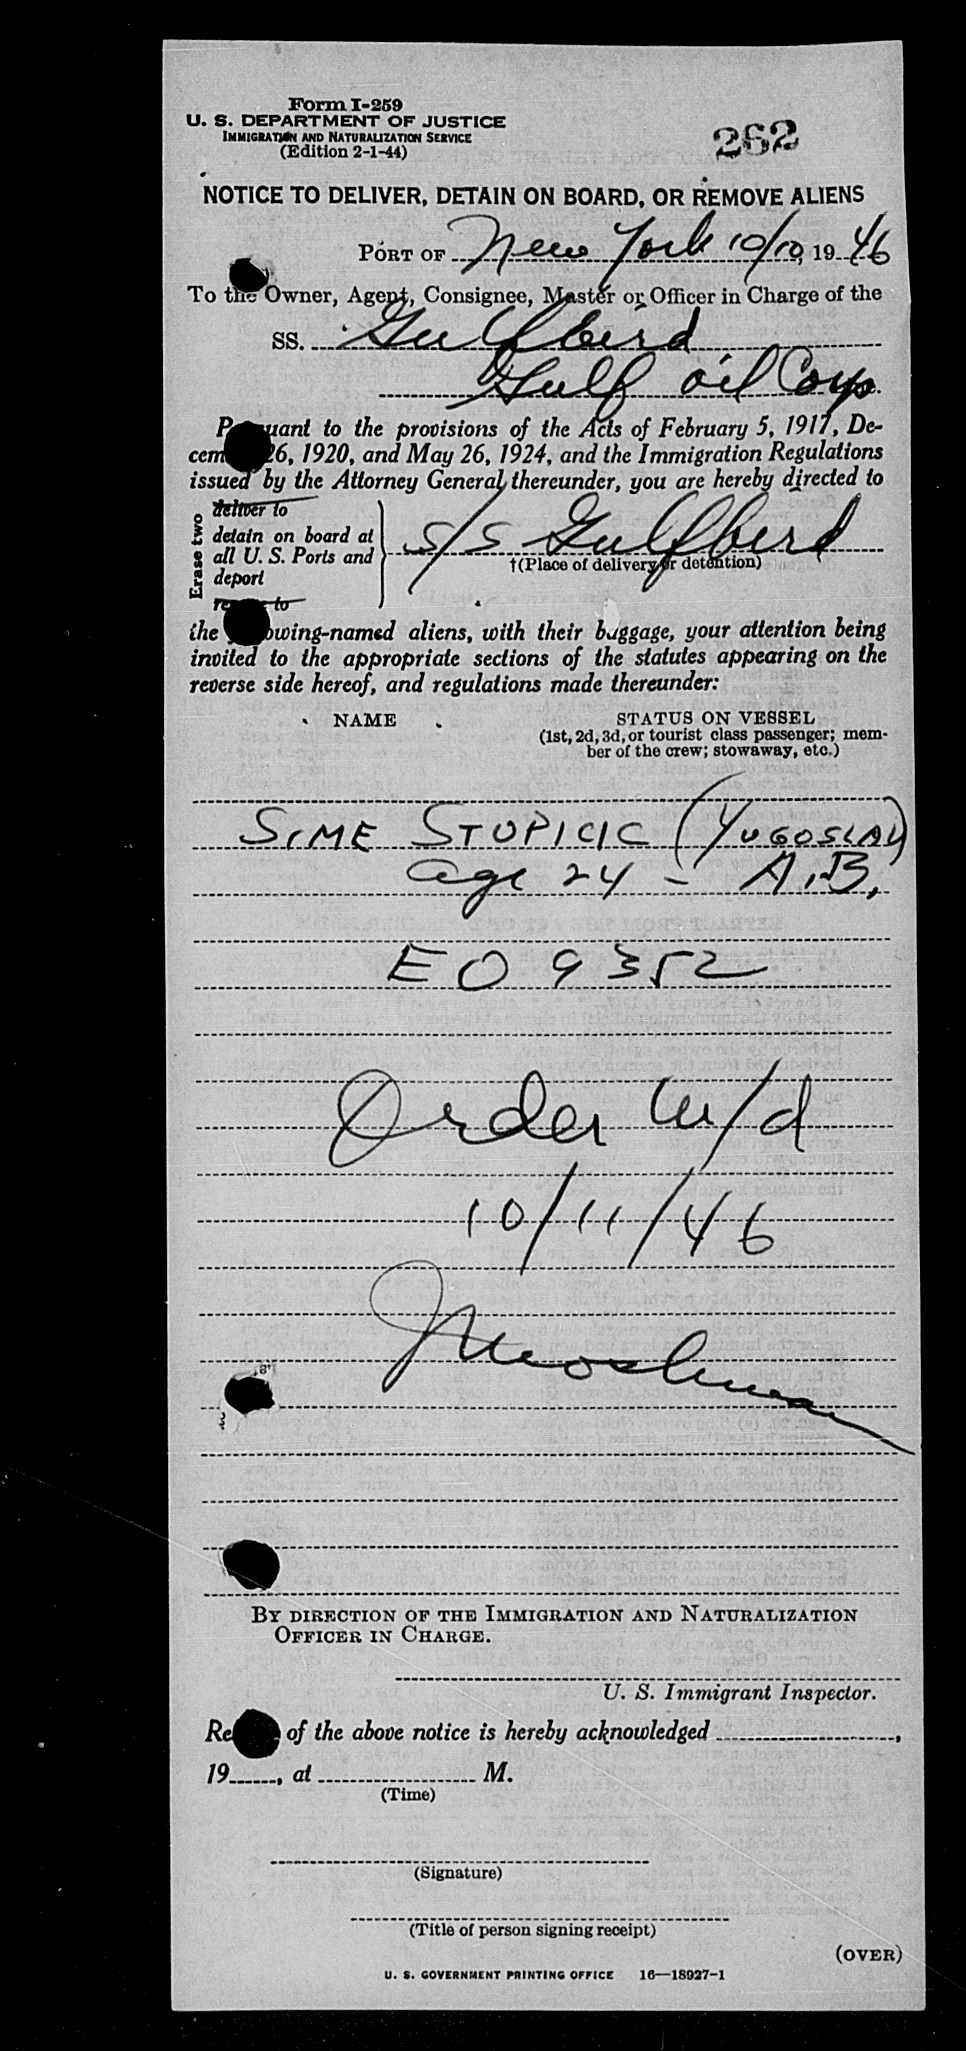 Form I-259
U. S. DEPARTMENT OF JUSTICE
IMMIGRATION AND NATURALIZATION SERVICE
(Edition 2-1-44)
262
NOTICE TO DELIVER, DETAIN ON BOARD, OR REMOVE ALIENS
PORT OF New York 10/10, 1946
To the Owner, Agent, Consignee, Master or Officer in Charge of the
SS. Gulfbird
Gulf oil Corp.
Pursuant to the provisions of the Acts of February 5, 1917, De-
cem 26, 1920, and May 26, 1924, and the Immigration Regulations
issued by the Attorney General thereunder, you are hereby directed to
Erase two
deliver to
detain on board at
all U. S. Ports and
deport
remove to
S/S Gulfbird
†(Place of delivery or detention)
the following-named aliens, with their baggage, your attention being
invited to the appropriate sections of the statutes appearing on the
reverse side hereof, and regulations made thereunder:
NAME
STATUS ON VESSEL
(1st, 2d, 3d, or tourist class passenger; mem-
ber of the crew; stowaway, etc.)
SIME STUPICIC (YUGOSLAV)
age 24 - A.B.
EO 9352
Order w/d
10/11/46
By DIRECTION OF THE IMMIGRATION AND NATURALIZATION
OFFICER IN CHARGE.
U. S. Immigrant Inspector.
Re of the above notice is hereby acknowledged ,
19 , at M.
(Time)
(Signature)
(Title of person signing receipt)
(OVER)
U. S. GOVERNMENT PRINTING OFFICE 16—18927-1